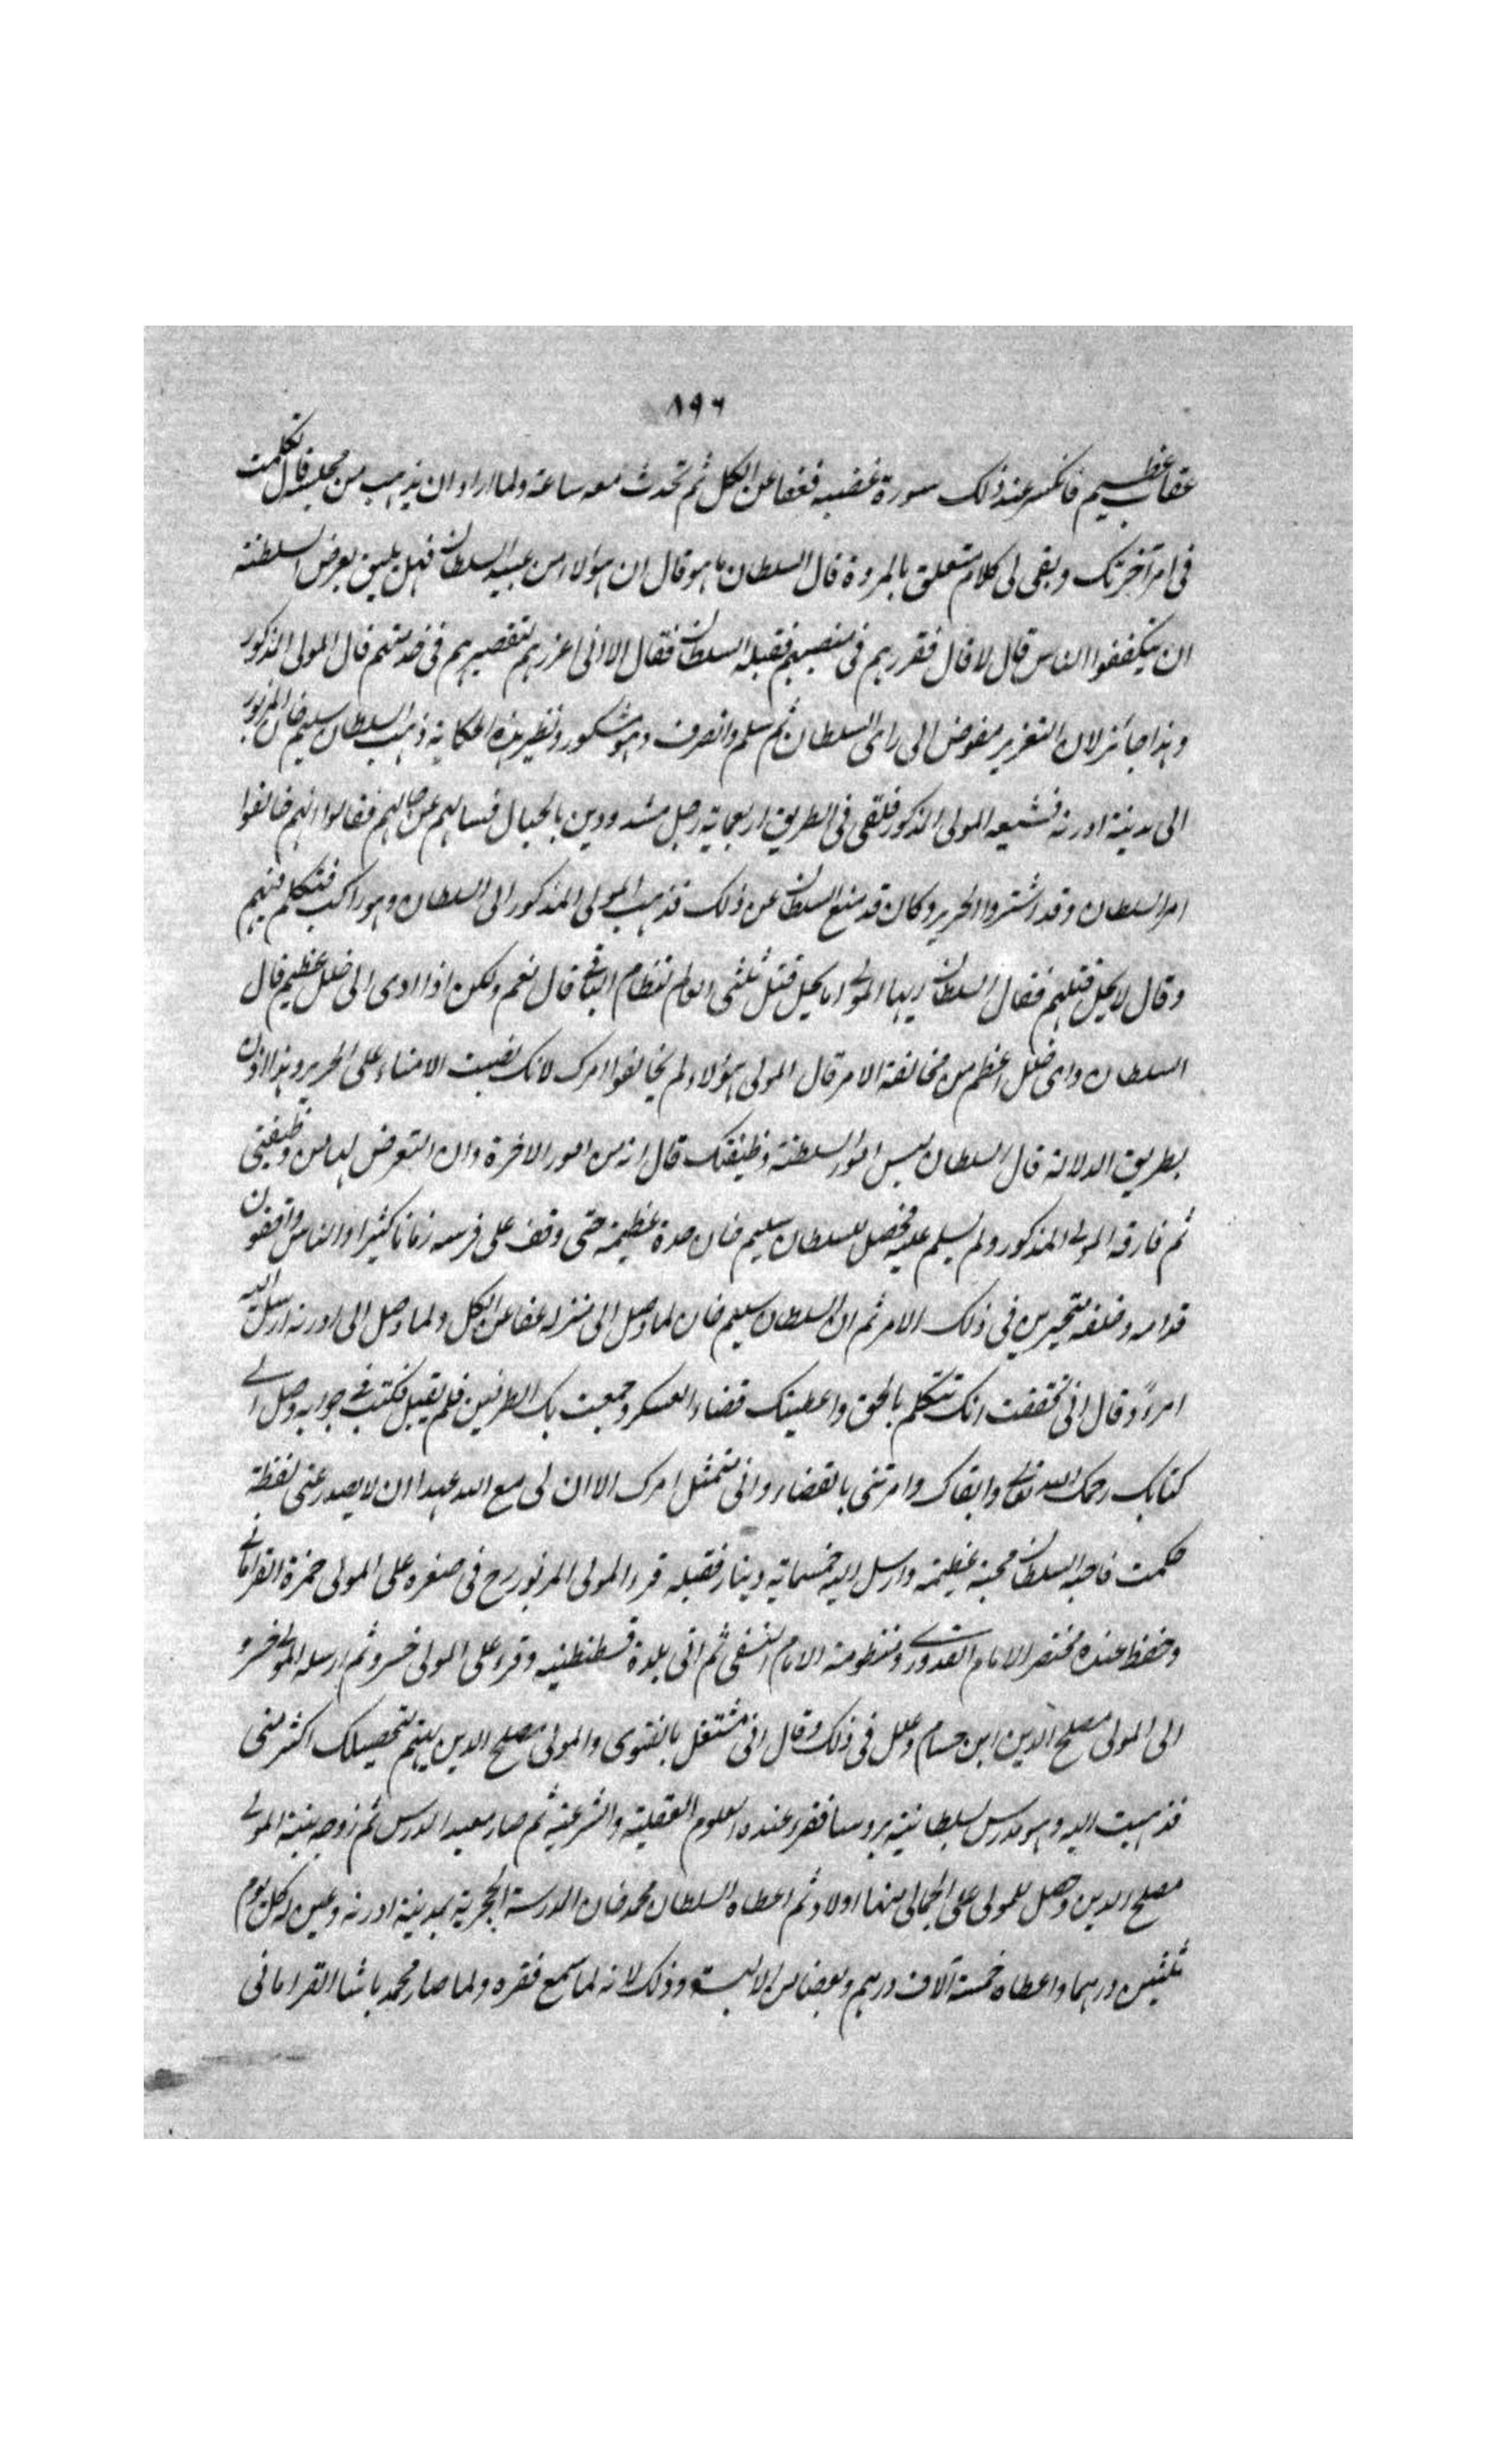 ٨٩٦
عقاب عظيم فانكسر عند ذلك سورة غضبه فعفا عن الكل ثم تحدث معه ساعة ولما اراد ان يذهب من مجلسه قال تكلمت
فى امر آخرتك وبقى لى كلام متعلق بالمروة قال السلطان ما هو قال ان هؤلاء من عبيد السلطان فهل يليق بعرض السلطنة
ان يتكففوا الناس قال لا قال فقررهم فى منصبهم فقبله السلطان فقال الا انى اعزرهم لتقصيرهم فى خدمتهم قال المولى المذكور
وهذا جائز لان التعزير مفوض الى راى السلطان ثم سلم وانصرف وهو مشكور ونظير هذه الحكاية ذهب السلطان سليم خان المزبور
الى مدينة ادرنه فشيعه المولى المذكور فلقى فى الطريق اربعماية رجل مشدودين بالحبال فسالهم عن حالهم فقالوا انهم خالفوا
امر السلطان وقد اشتروا الحرير وكان قد منع السلطان عن ذلك فذهب المولى المذكور الى السلطان وهو راكب فتكلم فيهم
وقال لا يحل قتلهم فقال السلطان ايها المولى اما يحل قتل ثلثى العالم لنظام الباقى قال نعم ولكن اذا ادى الى خلل عظيم قال
السلطان واى خلل اعظم من مخالفة الامر قال المولى هؤلاء لم يخالفوا امرك لانك نصبت الامناء على الحرير وهذا اذن
بطريق الدلالة قال السلطان ليس امور السلطنة وظيفتك قال انه من امور الاخرة وان التعرض لها من وظيفتى
ثم فارقه المولى المذكور ولم يسلم عليه فحصل للسلطان سليم خان حدة عظيمة حتى وقف على فرسه زمانا كثيرا والناس واقفون
قدامه وخلفه متحيرين فى ذلك الامر ثم ان السلطان سليم خان لما وصل الى منزله عفا عن الكل ولما وصل الى ادرنه ارسل اليه
امرا وقال انى تحققت انك تتكلم بالحق واعطيتك قضاء العسكر وجمعت بك الطرفين فلم يقبل فكتب فى جوابه وصل الى
كتابك رحمك الله تعالى وابقاك وامرتنى بالقضاء وانى متمثل امرك الا ان لى مع الله عهدا ان لا يصدر عنى لفظة
حكمت فاحبه السلطان محبة عظيمة وارسل اليه خمسماية دينار فقبله قرء المولى المزبور رح فى صغره على المولى حمزة القرامانى
وحفظ عنده مختصر الامام القدورى ومنظومة الامام النسفى ثم اتى بلدة قسطنطينيه وقرء على المولى خسرو ثم ارسله المولى خسرو
الى المولى مصلح الدين ابن حسام وعلل فى ذلك وقال انى مشتغل بالفتوى والمولى مصلح الدين يهتم بتحصيلك اكثر منى
فذهبت اليه وهو مدرس بسلطانية بروسا فقرء عنده العلوم العقلية والشرعية ثم صار معيد الدرس ثم زوجه بنته المولى
مصلح الدين وحصل للمولى على الجمالى منها اولاد ثم اعطاه السلطان محمد خان المدرسة الحجرية بمدينة ادرنه وعين له كل يوم
ثلثين درهما واعطاه خمسة آلاف درهم وبعضا من الالبسة وذلك لانه لما سمع فقره ولما صار محمد باشا القرامانى